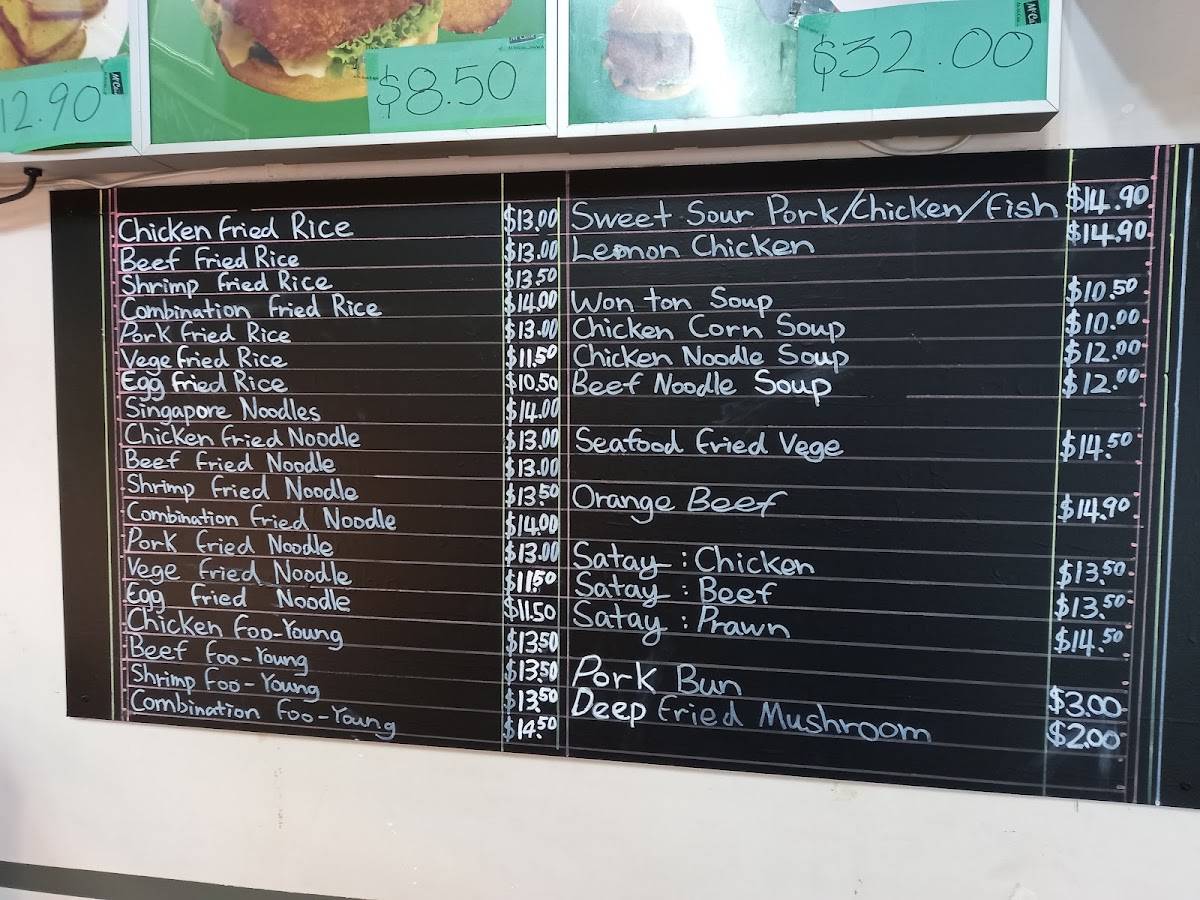 12.90
$8.50
$32.00
Chicken fried Rice $13.00
Beef Fried Rice $13.00
Shrimp fried Rice $13.50
Combination fried Rice $14.00
Pork fried Rice $13.00
Vege fried Rice $11.50
Egg fried Rice $10.50
Singapore Noodles $14.00
Chicken fried Noodle $13.00
Beef fried Noodle $13.00
Shrimp fried Noodle $13.50
Combination fried Noodle $14.00
Pork fried Noodle $13.00
Vege fried Noodle $11.50
Egg fried Noodle $11.50
Chicken foo-Young $13.50
Beef foo-Young $13.50
Shrimp foo-Young $13.50
Combination foo-Young $14.50
Sweet Sour Pork/Chicken/fish $14.90
Lemon Chicken $14.90
Won ton Soup $10.50
Chicken Corn Soup $10.00
Chicken Noodle Soup $12.00
Beef Noodle Soup $12.00
Seafood fried Vege $14.50
Orange Beef $14.90
Satay : Chicken $13.50
Satay : Beef $13.50
Satay : Prawn $14.50
Pork Bun $3.00
Deep fried Mushroom $2.00